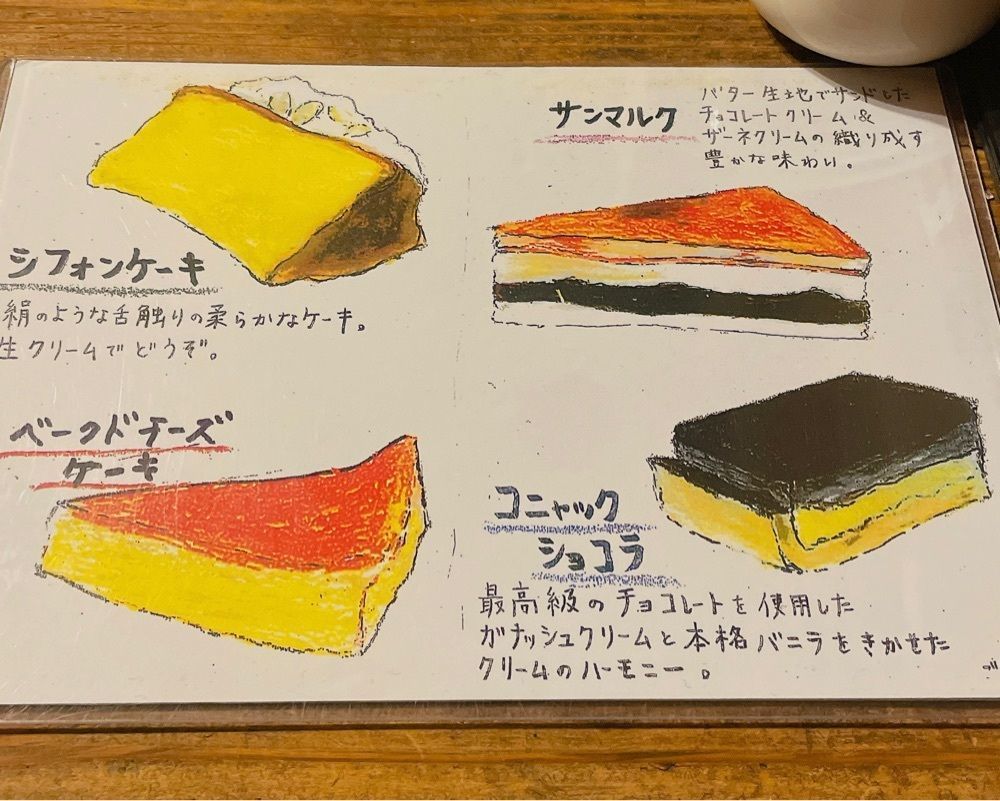 シフォンケーキ
絹のような舌触りの柔らかなケーキ。
生クリームでどうぞ。
ベークドチーズ
ケーキ
サンマルク
バター生地でサンドした
チョコレートクリーム&
ザーネクリームの織り成す
豊かな味わい。
コニャック
ショコラ
最高級のチョコレートを使用した
ガナッシュクリームと本格バニラをきかせた
クリームのハーモニー。